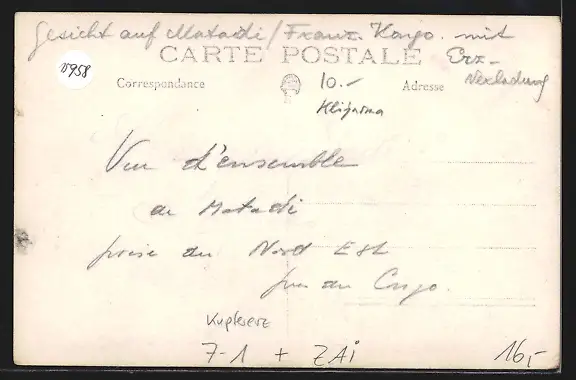 Gesicht auf Matadi / Franz. Kongo. mit
Erz-
Verladung
CARTE POSTALE
v958
Correspondance
Adresse
10.-
Vue d'ensemble
de Matadi
prise du Nord Est
du Congo.
Kupfererz
7-1 + ZAi
16,-